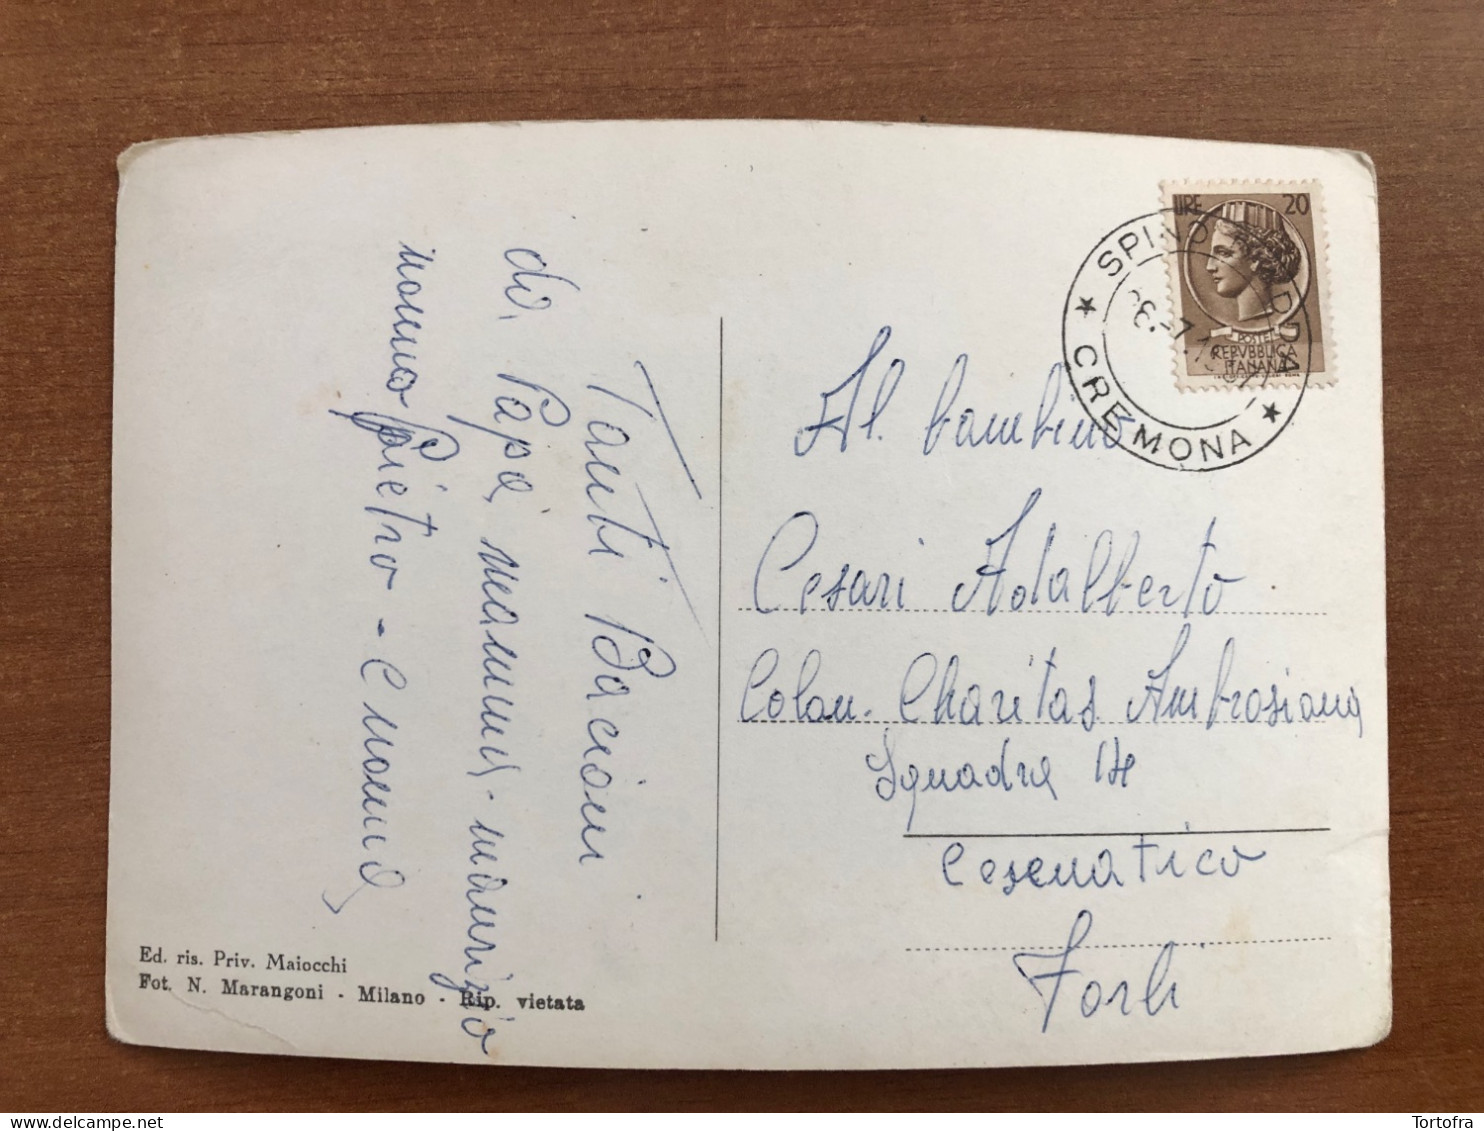 Tanti Bacioni
di Papà mamma - maurizio
nonno Pietro - e nonna
Ed. ris. Priv. Maiocchi
Fot. N. Marangoni - Milano - Rip. vietata
LIRE 20
POSTE
REPVBBLICA
ITALIANA
SPINO D'ADDA
CREMONA
Al bambino
Cesari Adalberto
Colon. Charitas Ambrosiana
Squadra 14
Cesenatico
Forlì
Tortofra